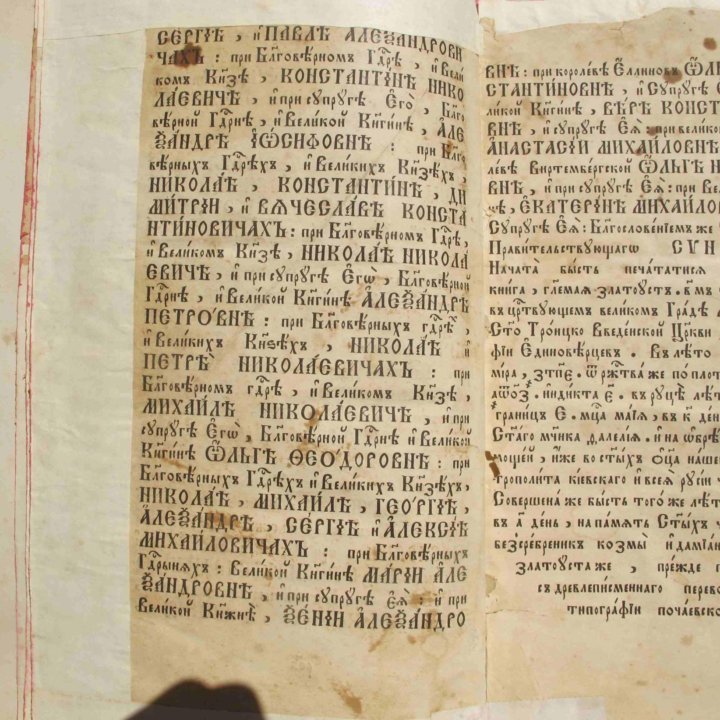 СЕРГІѢ, и҆ ПАВЛѢ АЛЕѮАНДРОВИ
ЧАХЪ : при Бл҃говѣ́рномъ Гдⷭ҇рѣ, и҆ Вели́
комъ Кн҃зѣ, КОНСТАНТІ́НѢ НИКО
ЛА́ЕВИЧѢ, и҆ при супру́гѣ Е҆гѡ̀, Бл҃го
вѣ́рной Гдⷭ҇рнѣ, и҆ Вели́кой Кнг҃и́нѣ, АЛЕ
ѮА́НДРѢ І҆Ѡ́СИФОВНѢ : при Бл҃го
вѣ́рныхъ Гдⷭ҇рѣхъ, и҆ Вели́кихъ Кн҃зѣхъ,
НИКОЛА́Ѣ, КОНСТАНТИ́НѢ, ДИ
МИ́ТРІИ, и҆ ВѦЧЕСЛА́ВѢ КОНСТА
НТИ́НОВИЧАХЪ: при Бл҃говѣ́рномъ Гдⷭ҇рѣ,
и҆ Вели́комъ Кн҃зѣ, НИКОЛА́Ѣ НИКОЛА
ЕВИЧѢ, и҆ при супру́гѣ Е҆гѡ̀, Бл҃говѣ́рной
Гдⷭ҇рнѣ, и҆ Вели́кой Кнг҃и́нѣ А҆ЛЕѮА́НДРѢ
ПЕТРО́ВНѢ : при Бл҃говѣ́рныхъ гдⷭ҇рѣхъ,
и҆ Вели́кихъ Кн҃зѣхъ, НИКОЛА́Ѣ и҆
ПЕТРѢ̀ НИКОЛА́ЕВИЧАХЪ : при
Бл҃говѣ́рномъ гдⷭ҇рѣ, и҆ Вели́комъ Кн҃зѣ,
МИХАИ́ЛѢ НИКОЛА́ЕВИЧѢ, и҆ при
супру́гѣ Е҆гѡ̀, Бл҃говѣ́рной Гдⷭ҇рнѣ и҆ Вели́кой
Кнг҃и́нѣ Ѻ҆́ЛЬГѢ ѲЕО́ДОРОВНѢ : при
Бл҃говѣ́рныхъ Гдⷭ҇рѣхъ и҆ Вели́кихъ Кн҃зѣхъ,
НИКОЛА́Ѣ, МИХАИ́ЛѢ, ГЕО́РГІИ,
А҆ЛЕѮА́НДРѢ, СЕ́РГІѢ и҆ А҆ЛЕѮІ́Ѣ
МИХАИ́ЛОВИЧАХЪ : при Бл҃говѣ́рныхъ
Гдⷭ҇рыняхъ : Вели́кой Кнг҃и́нѣ МАРІ́И АЛЕ
ѮА́НДРОВНѢ, и҆ при супру́гѣ Е҆ѧ̀ : и҆ при
Вели́кой Кнѧжнѣ̀, ѮЕ́НІИ А҆ЛЕѮА́НДРО
ВНѢ : при короле́вѣ Е҆́ллиновъ
СТАНТИ́НОВНѢ, и҆ Супру́гѣ
ли́кой Кнг҃и́нѣ, ВѢ́РѢ КОНСТ
ВНѢ, и҆ супру́гѣ Е҆ѧ̀ : при вели́ко
А҆НАСТАСІ́И МИХАИ́ЛОВНѢ
ле́вѣ Виртембе́ргской Ѻ҆́ЛЬГѢ Н
ВНѢ, и҆ при супру́гѣ Е҆ѧ̀ : при Ве
ЕКАТЕРІ́НѢ МИХАИ́ЛО
Супру́гѣ Е҆ѧ̀ : Благослове́нїемъ же
Прави́тельствующагѡ СУН
Начата̀ бы́сть печа́татисѧ
кни́га, гл҃е́маѧ златоу́стъ. в̾ мъ
въ црⷭ҇твующемъ вели́комъ Гра́дѣ
Ст҃о Тро́ицко Введе́нской Цр҃кви
фі́и Е҆диновѣ́рцевъ . Въ лѣ́то
мі́ра, ҂зтпе҃. ѿ ржⷭ҇тва́ же по пло́т
а҂ѡоз҃. і҆нди́кта е҃. въ руцѣ̀ лѣ́т
грани́цъ Е . мцⷭ҇а ма́їа, въ к҃ де́н
Ст҃а́го мч҃ика далеле́ѧ. и҆ на ѡ҆брѣ́
моще́й, и҆́же во ст҃ы́хъ ѻ҆ц҃а̀ наше
трополи́та кі́евскаго и҆ всеѧ̀ русі́и
Соверше́на же бы́сть того́же лѣ́т
въ а҃ де́нь, на па́мѧть Ст҃ы́хъ
безсре́бреникъ козмы̀ и҆ дамїа́н
златоу́ста же , пре́жде
съ древлепи́сменнаго перево
типогра́фїи поча́евско